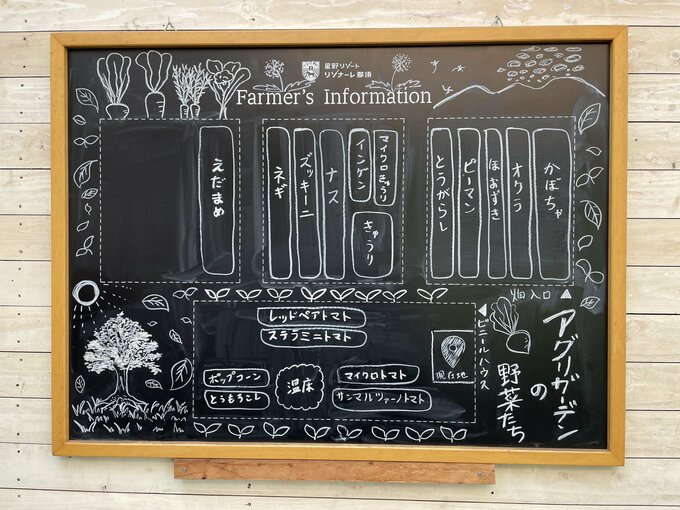 星野リゾート
リゾナーレ 那須
Farmer's Information
えだまめ
ネギ
ズッキーニ
ナス
インゲン
マイクロきゅうり
きゅうり
とうがらし
ピーマン
ほおずき
オクラ
かぼちゃ
畑入口
アグリガーデン
の
野菜たち
ビニールハウス
レッドペアトマト
ステラミニトマト
ポップコーン
とうもろこし
温床
マイクロトマト
サンマルツァーノトマト
現在地